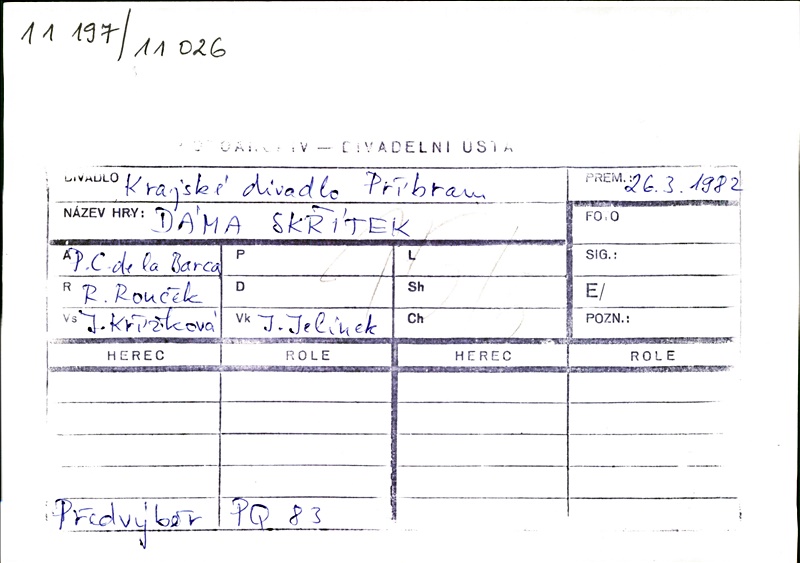 11 197/11 026
FOTOARCHIV — DIVADELNÍ ÚSTA
DIVADLO Krajské divadlo Příbram PREM.: 26.3.1982
NÁZEV HRY: DÁMA SKŘÍTEK FOTO
A P.C. de la Barca P L SIG.:
R R. Rouček D Sh E/
Vs J. Křížková Vk J. Jelínek Ch POZN.:
HEREC ROLE HEREC ROLE
Předvýběr PQ 83